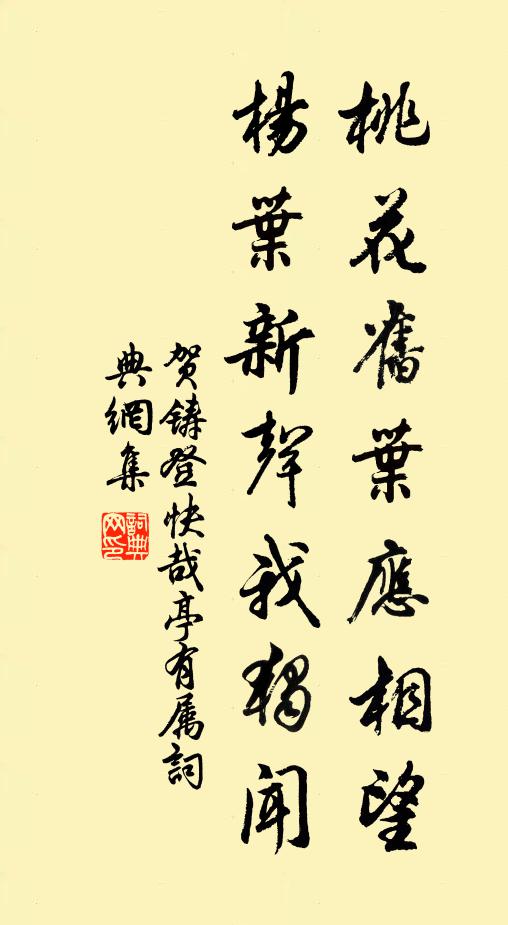 桃花舊葉應相望
楊葉新聲我獨聞
賀鑄登快哉亭有属詞
典網集
詞典
网印